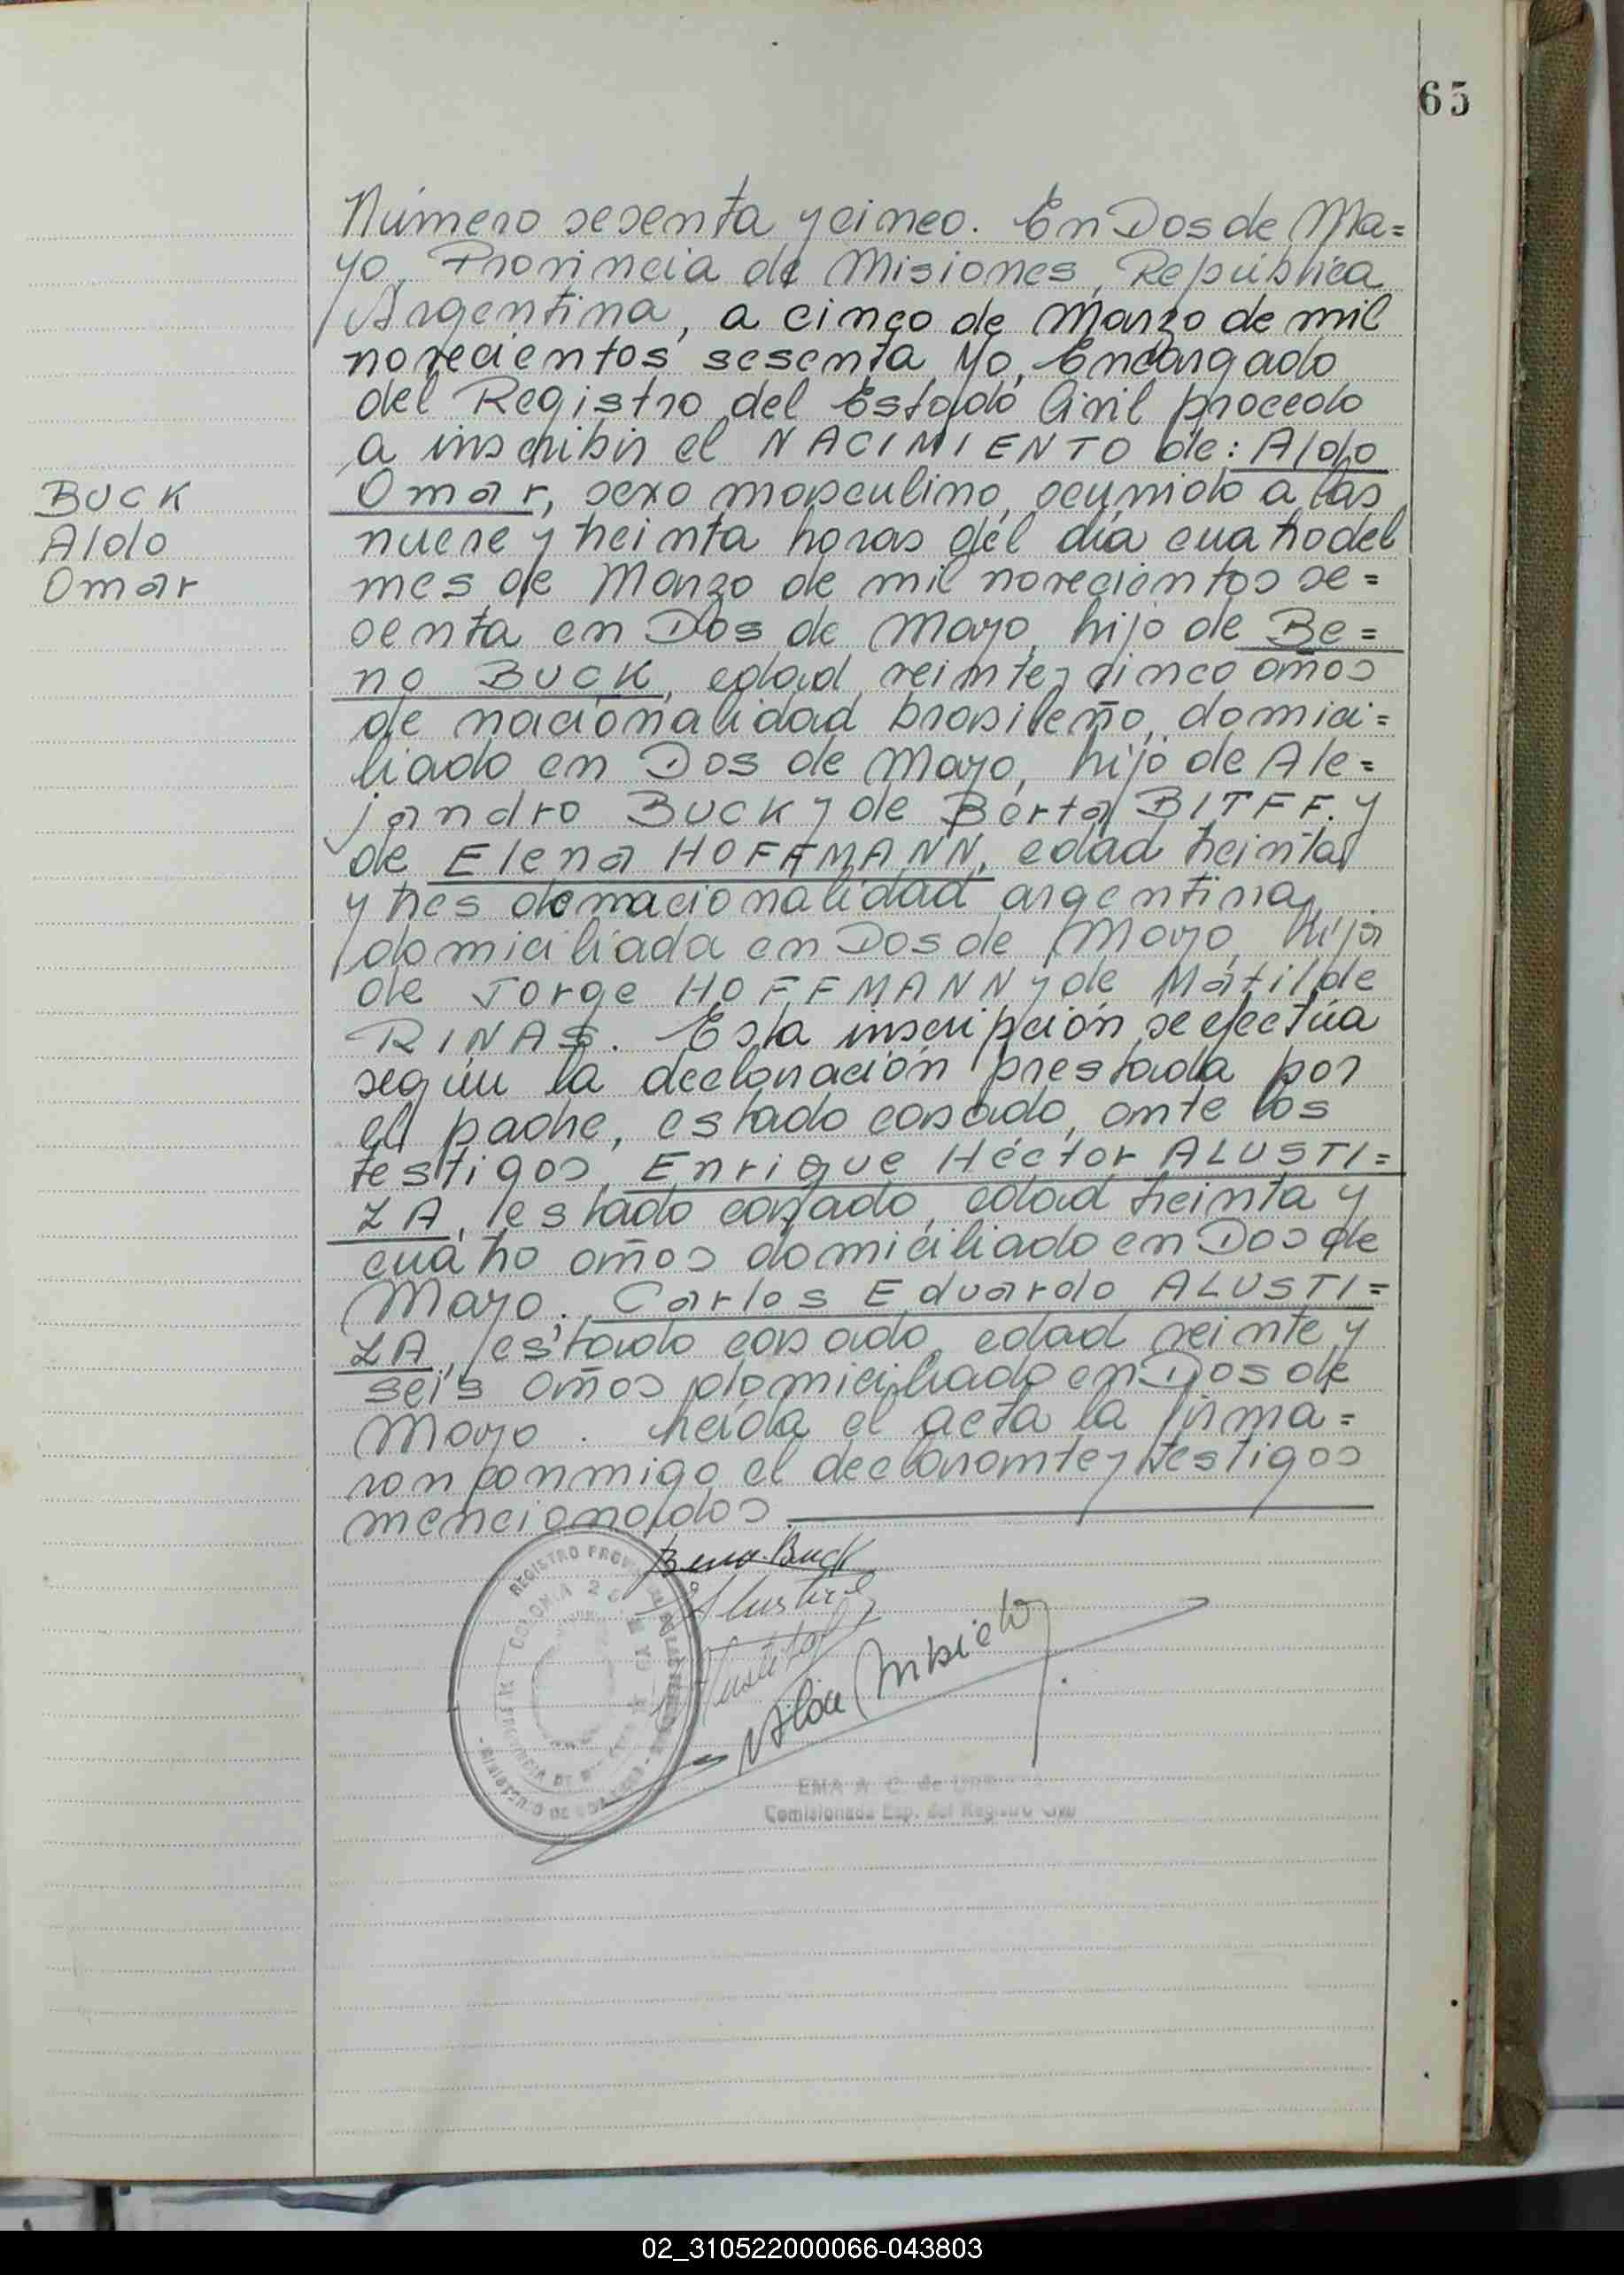 65
Número sesenta y cinco. En Dos de Ma=
yo, Provincia de Misiones, República
Argentina, a cinco de Marzo de mil
novecientos sesenta, Yo, Encargado
del Registro del Estado Civil procedo
a inscribir el NACIMIENTO de: Aldo
BUCK
Aldo
Omar
Omar, sexo masculino, ocurrido a las
nueve y treinta horas del día cuatro del
mes de Marzo de mil novecientos se=
senta en Dos de Mayo, hijo de Be=
no BUCK, edad veinte y cinco años
de nacionalidad brasileño, domici=
liado en Dos de Mayo, hijo de Ale=
jandro BUCK y de Berta BITFF. y
de Elena HOFFMANN, edad treinta
y tres de nacionalidad argentina,
domiciliada en Dos de Mayo, hija
de Jorge HOFFMANN y de Matilde
RINAS. Esta inscripción se efectúa
según la declaración prestada por
el padre, estado casado, ante los
testigos, Enrique Héctor ALUSTI=
ZA, estado casado, edad treinta y
cuatro años domiciliado en Dos de
Mayo. Carlos Eduardo ALUSTI=
ZA, estado casado, edad veinte y
seis años domiciliado en Dos de
Mayo. Leída el acta la firma=
ron conmigo el declarante y testigos
mencionados.
Beno Buck
REGISTRO
COLONIA 2 DE MAYO
PROVINCIA DE
EMA A. C. de
Comisionada Esp. del Registro Civil
02_310522000066-043803